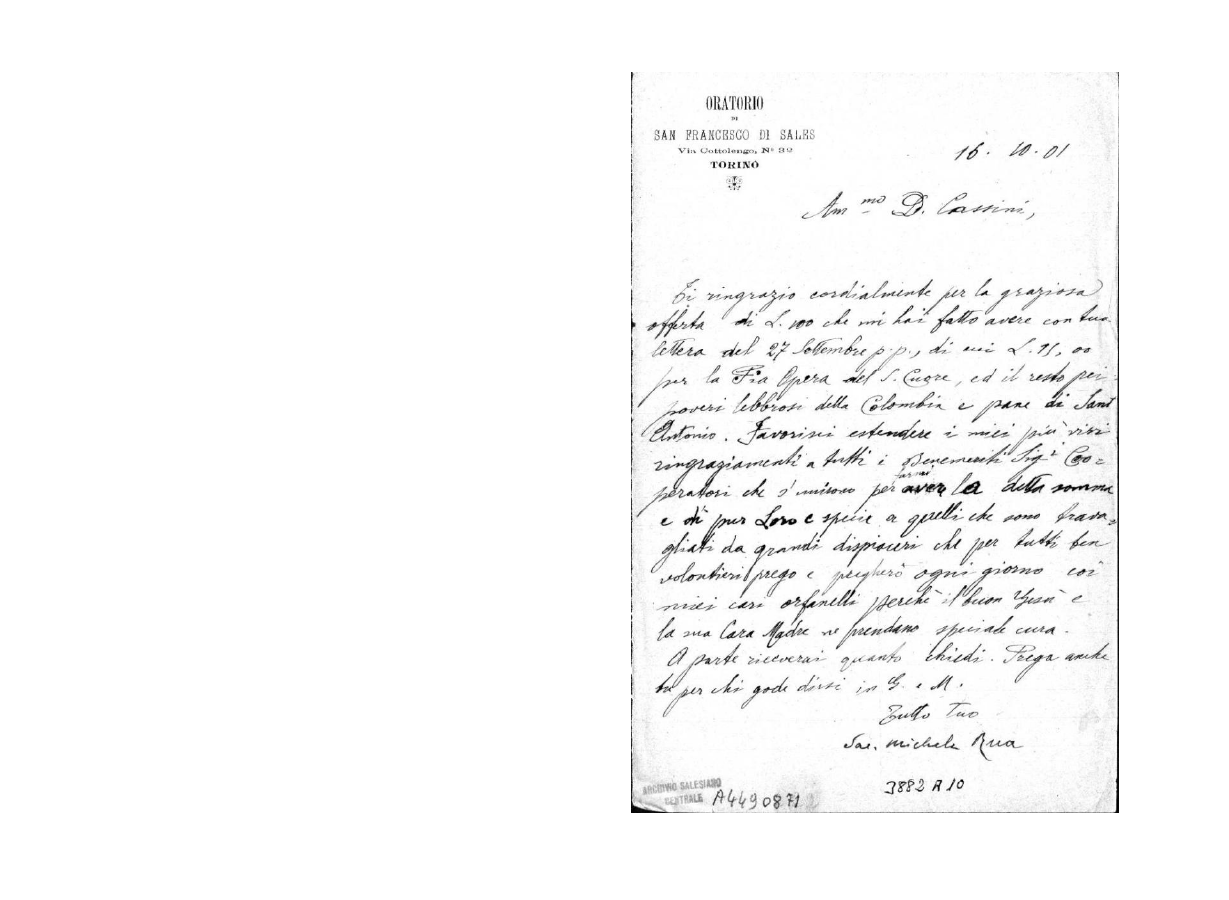 ORATORIO
DI
SAN FRANCESCO DI SALES
Via Cottolengo, N° 32
TORINO
16. 10. 01
Am mo D. Cassini,
Ti ringrazio cordialmente per la graziosa
offerta di L. 100 che mi hai fatto avere con tua
lettera del 27 Settembre p.p., di cui L. 00
per la Pia Opera del S. Cuore, ed il resto pei
poveri lebbrosi della Colombia e pane di Sant
Antonio. Favorisci estendere i miei più vivi
ringraziamenti a tutti i Benemeriti Sig.i Coo=
peratori che s'unirono per farmi aver la detta somma
e di' pur Loro e specie a quelli che sono trava=
gliati da grandi dispiaceri che per tutti ben
volontieri prego e pregherò ogni giorno coi
miei cari orfanelli perchè il buon Gesù e
la sua Cara Madre ne prendano speciale cura.
A parte riceverai quanto chiedi. Prega anche
tu per chi gode dirsi in G. e M.
Tutto Tuo
Sac. Michele Rua
3882 A 10
ARCHIVIO SALESIANO
CENTRALE
A4490871